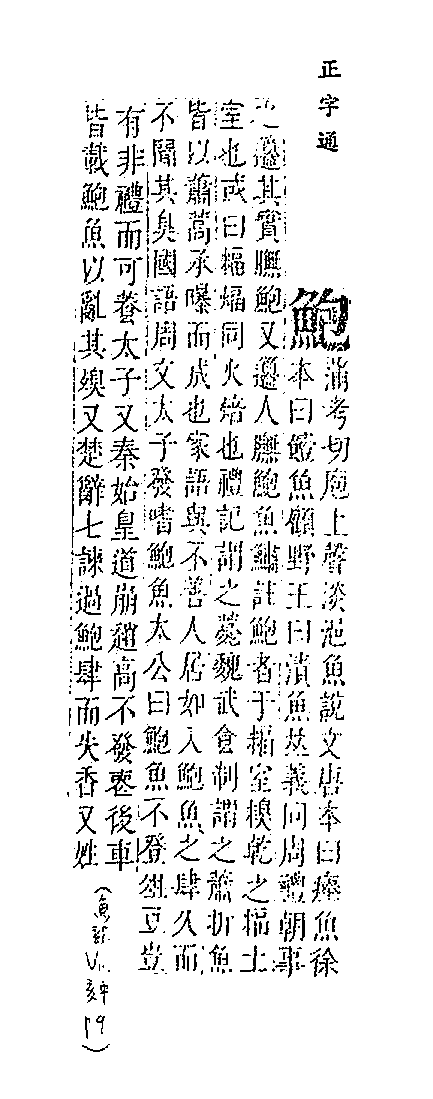 正字通
鮑
蒲考切庖上聲淡浥魚說文唐本曰瘞魚徐
本曰饐魚顧野王曰漬魚𠀤義同周禮朝事
之籩其實膴鮑又籩人膴鮑魚鱐註鮑者于䊗室糗乾之䊗土
室也或曰䊗煏同火焙也禮記謂之薧魏武食制謂之蕭折魚
皆以蕭蒿承曝而成也家語與不善人居如入鮑魚之肆久而
不聞其臭國語周文太子發嗜鮑魚太公曰鮑魚不登俎豆豈
有非禮而可養太子又秦始皇道崩趙高不發喪後車
皆載鮑魚以亂其臭又楚辭七諫過鮑肆而失香又姓
(魚部 19)